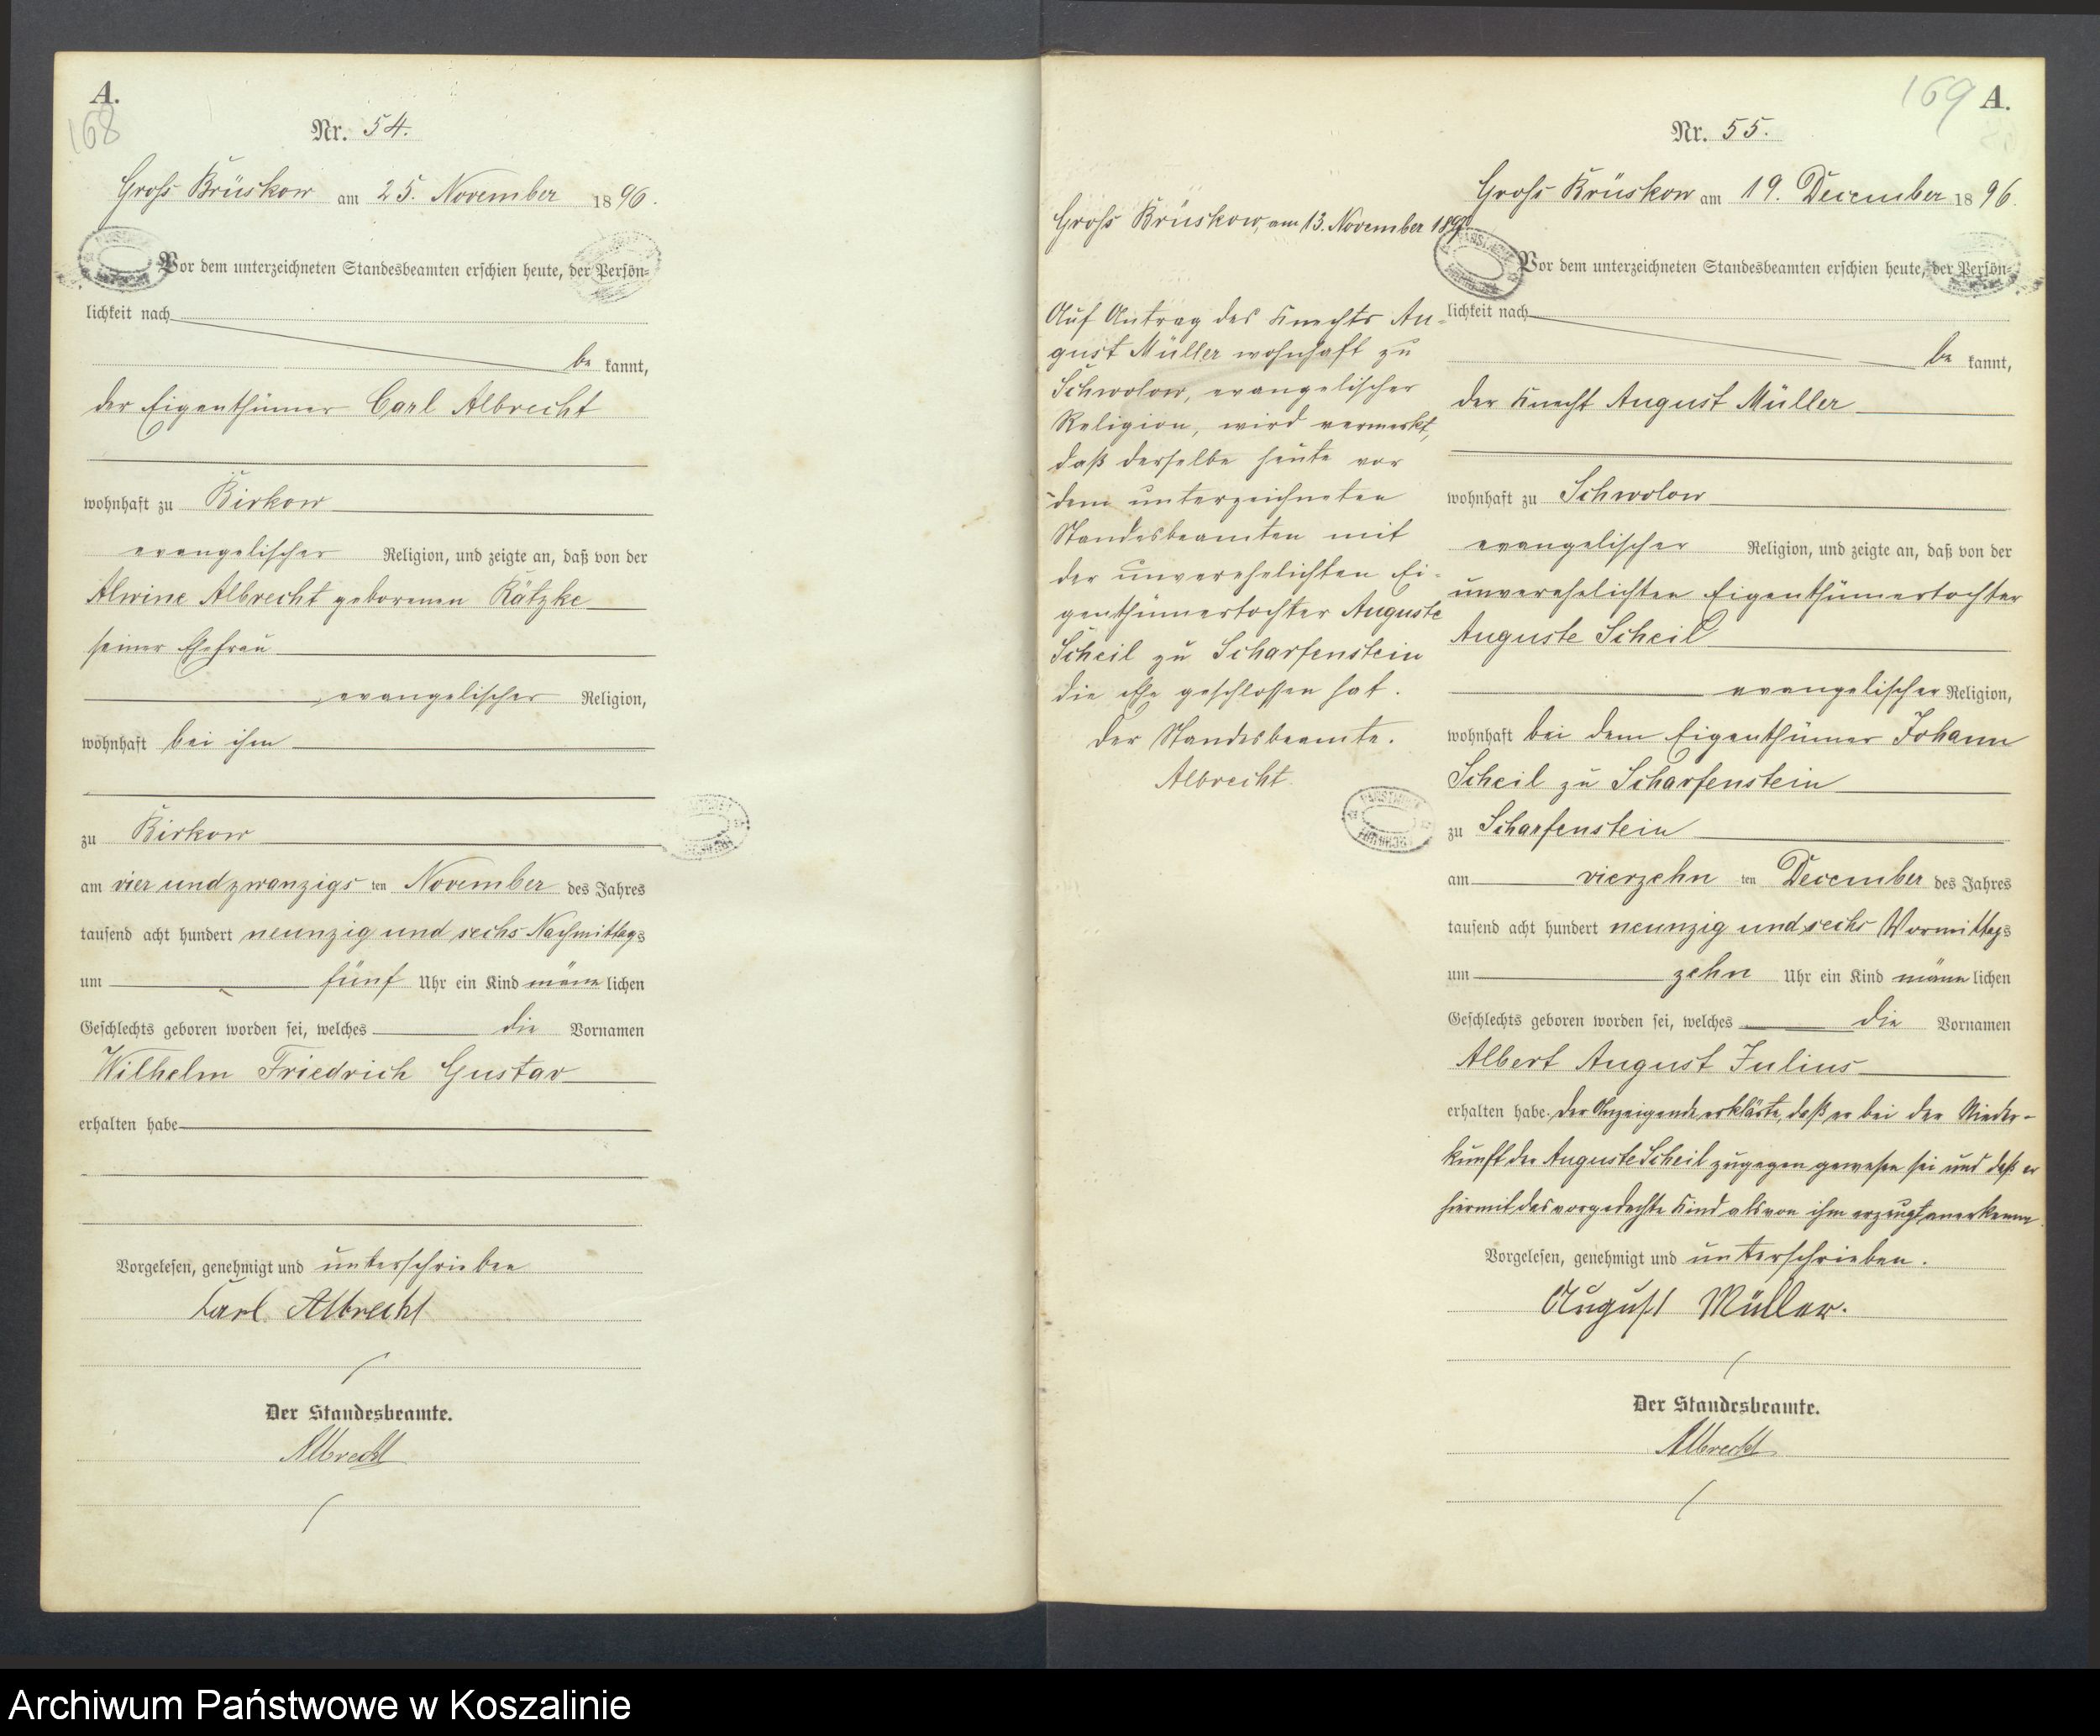 A.
168
Nr. 54.
Groß Brüskow am 25. November 1896.
Vor dem unterzeichneten Standesbeamten erschien heute, der Persön-
lichkeit nach
be kannt,
der Eigenthümer Carl Albrecht
wohnhaft zu Birkow
evangelischer Religion, und zeigte an, daß von der
Alwine Albrecht geborenen Rätzke
seiner Ehefrau
evangelischer Religion,
wohnhaft bei ihm
zu Birkow
am vier und zwanzigs ten November des Jahres
tausend acht hundert neunzig und sechs Nachmittags
um fünf Uhr ein Kind männ lichen
Geschlechts geboren worden sei, welches die Vornamen
Wilhelm Friedrich Gustav
erhalten habe
Vorgelesen, genehmigt und unterschrieben
Carl Albrecht
Der Standesbeamte.
Albrecht
169 A.
Nr. 55.
Groß Brüskow am 19. December 1896.
Vor dem unterzeichneten Standesbeamten erschien heute, der Persön-
lichkeit nach
be kannt,
der Knecht August Müller
wohnhaft zu Schwolow
evangelischer Religion, und zeigte an, daß von der
unverehelichten Eigenthümertochter
Auguste Scheil
evangelischer Religion,
wohnhaft bei dem Eigenthümer Johann
Scheil zu Scharfenstein
zu Scharfenstein
am vierzehn ten December des Jahres
tausend acht hundert neunzig und sechs Vormittags
um zehn Uhr ein Kind männ lichen
Geschlechts geboren worden sei, welches die Vornamen
Albert August Julius
erhalten habe. Der Anzeigende erklärte, daß er bei der Nieder-
kunft der Auguste Scheil zugegen gewesen sei und daß er
hiermit das vorgedachte Kind als von ihm erzeugt anerkenne.
Vorgelesen, genehmigt und unterschrieben.
August Müller.
Der Standesbeamte.
Albrecht
Groß Brüskow, am 13. November
Auf Antrag des Knechts Au-
gust Müller wohnhaft zu
Schwolow, evangelischer
Religion, wird vermerkt,
daß derselbe heute vor
dem unterzeichneten
Standesbeamten mit
der unverehelichten Ei-
genthümertochter Auguste
Scheil zu Scharfenstein
die Ehe geschlossen hat.
Der Standesbeamte.
Albrecht.
Archiwum Państwowe w Koszalinie